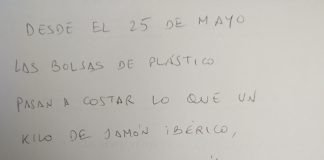 DESDE EL 25 DE MAYO
LAS BOLSAS DE PLÁSTICO
PASAN A COSTAR LO QUE UN
KILO DE JAMÓN IBÉRICO,